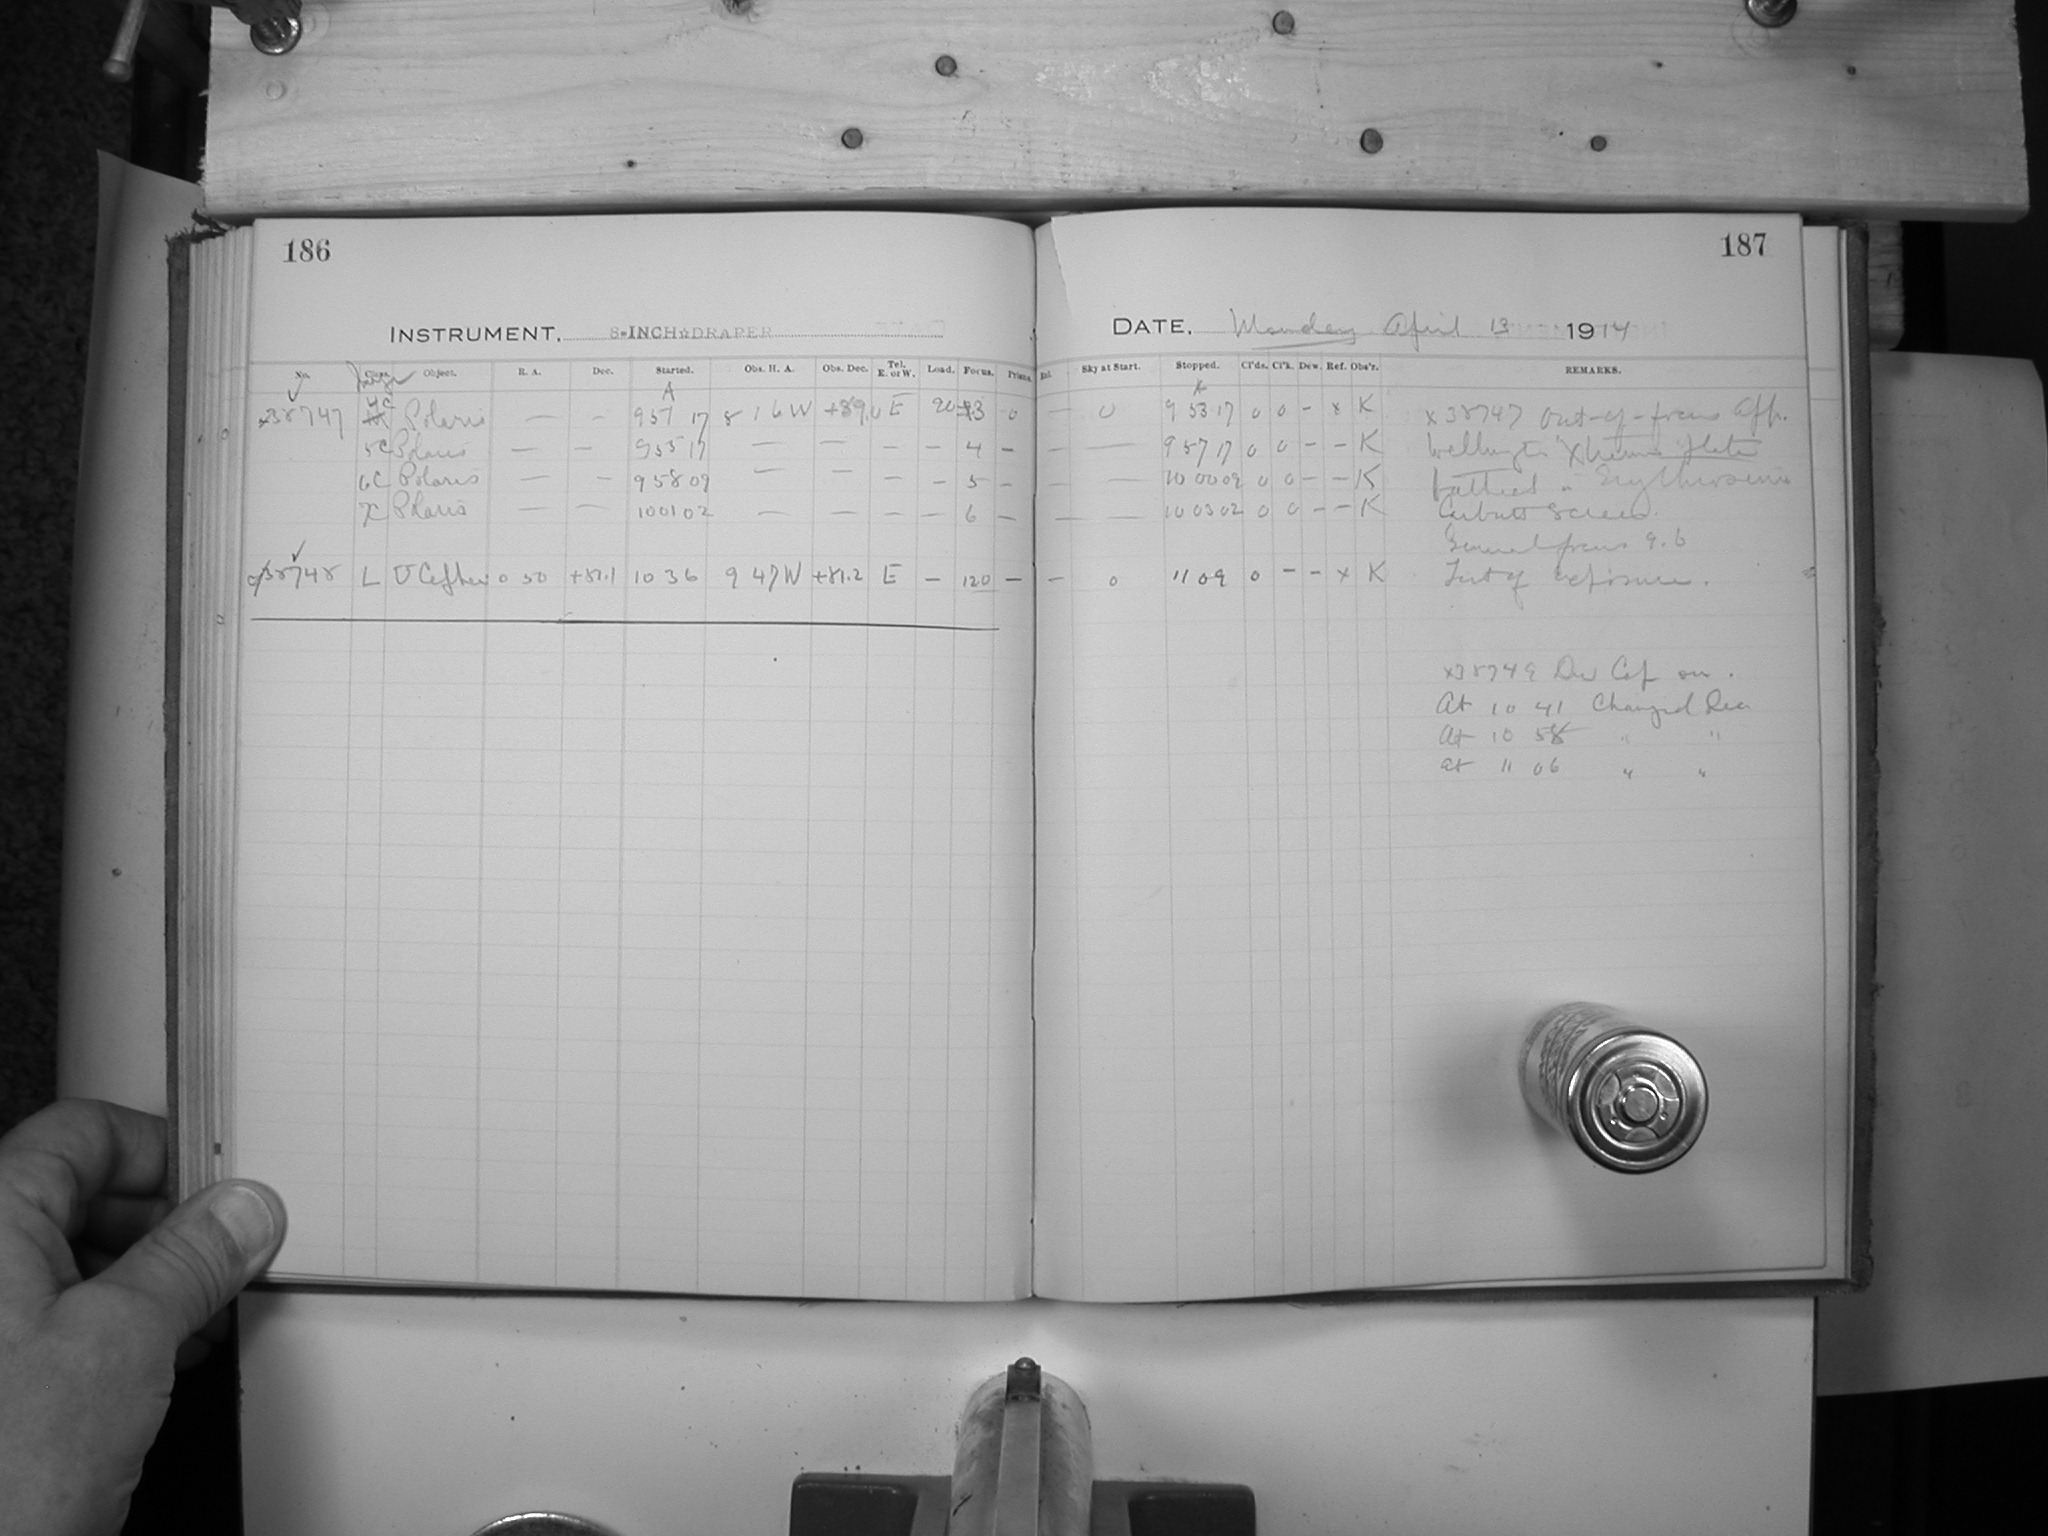 186
187
INSTRUMENT, 8-INCH DRAPER
DATE, Monday April 13 1914
No. Class. Object. R. A. Dec. Started. Obs. H. A. Obs. Dec. Tel. E. or W. Load. Focus. Prism. Sky at Start. Stopped. Cl'ds. Cl'k. Dew. Ref. Obs'r. REMARKS.
A A
x38747 4C Polaris — – 9 51 17 8 16 W +89.0 E 20 3 0 — 0 9 53 17 0 0 – x K x38747 Out-of-focus App.
5C Polaris — – 9 55 17 — — – – 4 – – — 9 57 17 0 0 – – K Wellington Xtreme Plate
6C Polaris — – 9 58 09 — — – – 5 – – — 10 00 09 0 0 – – K bathed in Erythrosine
7C Polaris — — 10 01 02 — — – – 6 – — — 10 03 02 0 0 – – K Carbutt Screen.
General focus 9.6
x38748 L U Cephei 0 50 +81.1 10 36 9 47 W +81.2 E – 120 – – 0 11 09 0 – – x K Test of exposure.
x38749 Dew Cap on.
At 10 41 Changed Dec
At 10 58 " "
at 11 06 " "